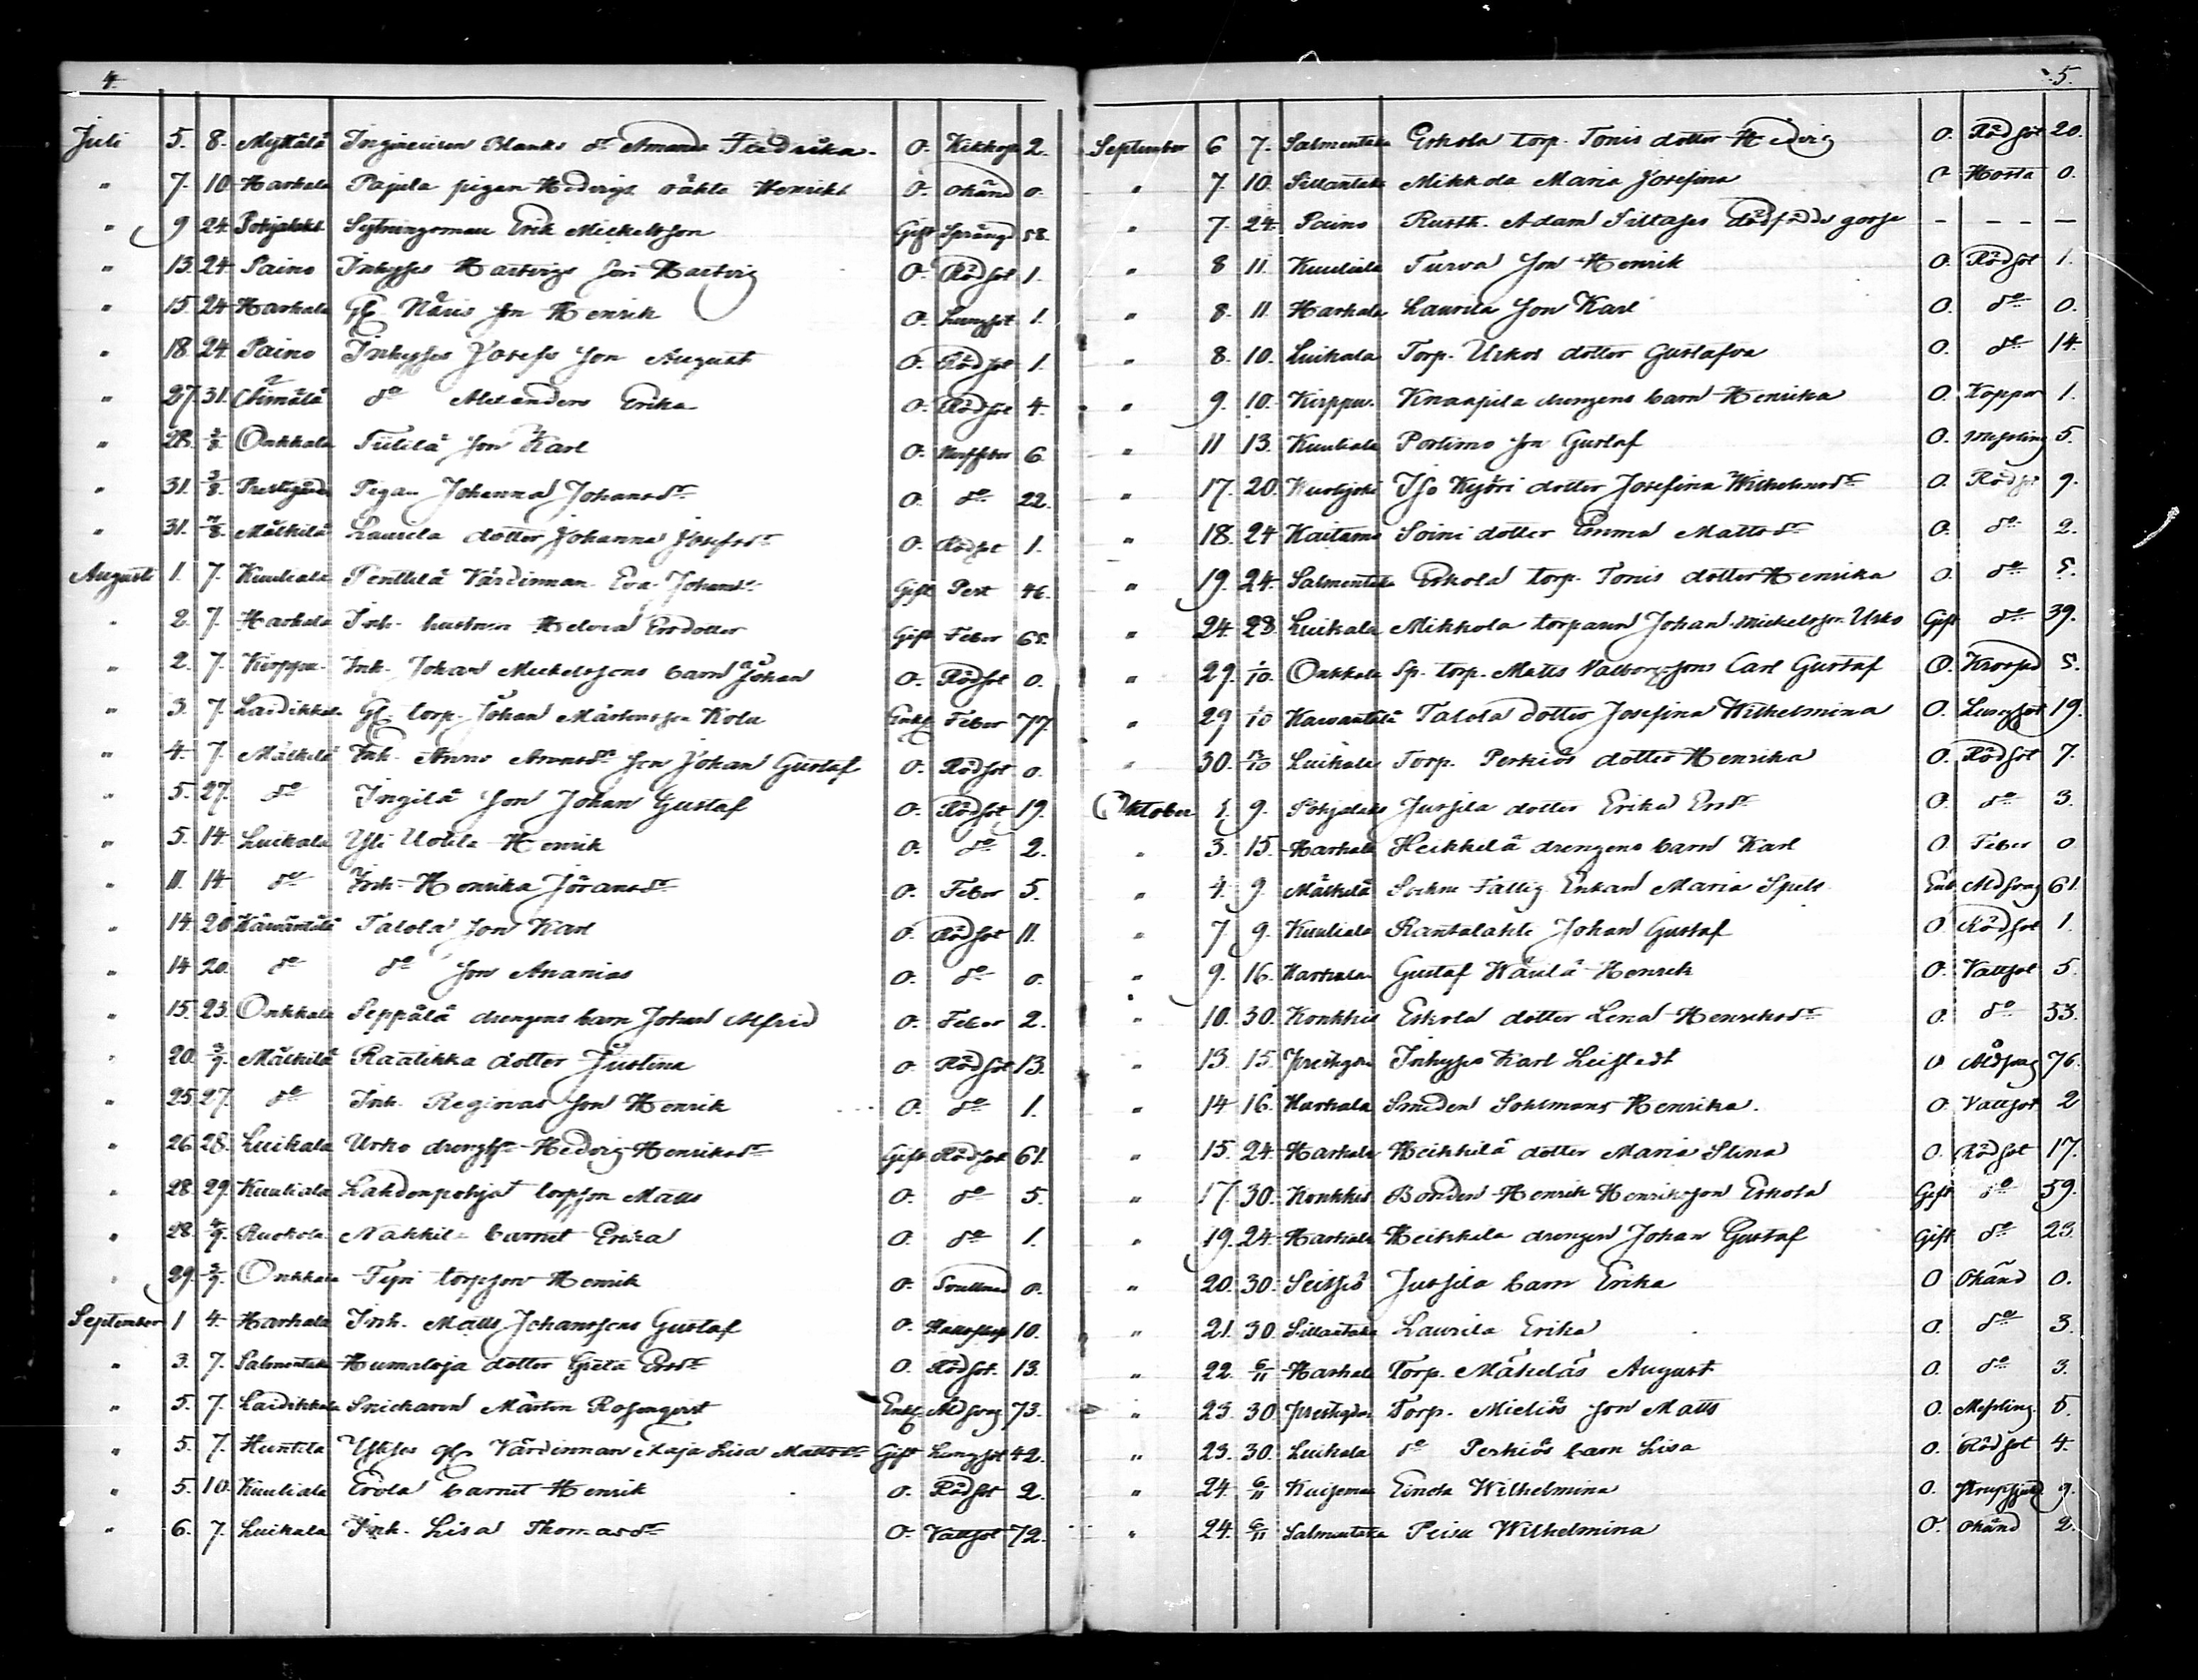 4.
Juli 5. 8. Myttälä Ingineuren Blanks dr Amanda Fredrika. O. Kikhosta 2.
" 7. 10 Harhala Pajula pigan Hedvigs oäkta Henrik O. Okänd 0.
" 9 24 Pohjalaht Sytningsman Erik Mickelsson Gift Spräng 58.
" 13. 24 Paino Inhyses Hartvigs son Hartvig O. Rödsot 1.
" 15. 24 Harhala Gl. Näris son Henrik O. Lungsot 1.
" 18. 24. Paino Inhyses Josefs son August O. Rödsot 1.
" 27. 31. do Alexanders Erika O. Rödsot 4.
" 28. 2/8. Onkkala Tiitilä son Karl O. Nerffeber 6.
" 31. 3/8. Prestgård Pigan Johanna Johansdr O. do 22.
" 31. 7/8. Mälkilä Laurila dotter Johanna Josefsdr O. Rödsot 1.
Augusti 1. 7. Kuuliala Penttilä Värdinnan Eva Johansdr Gift Pest 46.
" 2. 7. Harhala Inh. hustrun Helena Ersdotter Gift Feber 65.
" 2. 7. Kirppu. Inh. Johan Mickelssons barn Johan O. Rödsot 0.
" 3. 7. Laidikkala Gl. torp. Johan Mårtensson Kola Enkl. Feber 77.
" 4. 7. Mälkilä Inh. Annas Annasdr son Johan Gustaf O. Rödsot 0.
" 5. 27. do Ingilä son Johan Gustaf O. Rödsot 19.
" 5. 14. Luikala Yli Uotila Henrik O. do 2.
" 11. 14 do Inh. Henrika Jöransdr O. Feber 5.
" 14. 20 Kärväntälä Talola son Karl O. Rödsot 11.
" 14 20. do do son Ananias O. do 0.
" 15. 23. Onkkala Seppälä drengens barn Johan Alfrid O. Feber 2.
" 20. 3/9. Mälkilä Raatikka dotter Justina O. Rödsot 13.
" 25 27. do Inh. Reginas son Henrik O. do 1.
" 26 28. Luikala Urko drengh. Hedvig Henriksdr Gift Rödsot 61.
" 28. 29. Kuuliala Lahdenpohja torpson Matts O. do 5.
" 28. 4/9. Ruokola Nahkil- barnet Erika O. do 1.
" 29. 3/9. Onkkala Tyri torpson Henrik O. 0.
September 1 4. Harhala Inh. Matts Johanssons Gustaf O. 10.
" 3. 7. Salmentaka Humaloja dotter Greta Ersdr O. Rödsot. 13.
" 5. 7. Laidikkala Snickaren Mårten Rosenqvist Enkl. Åldrag 73.
" 5. 7. Huntila Värdinnan Maja Lisa Mattsdr Gift Lungsot 42.
" 5. 10. Kuuliala Erola barnet Henrik O. Rödsot 2.
" 6. 7. Luikala Inh. Lisa Thomasdr O. Vattsot 72.
5.
September 6 7. Salmentaka Eskola torp. Tonis dotter Hedvig O. Rödsot 20.
" 7. 10. Sillantaka Mikkola Maria Josefina O Hosta 0.
" 7. 24. Paino Rustk. Adam Siltases dödfödde gosse - - - -
" 8 11. Kuuliala Turva son Henrik O. Rödsot 1.
" 8. 11. Harhala Laurila son Karl O. do 0.
" 8. 10. Luikala Torp. Urkos dotter Gustafva O. do 14.
" 9. 10. Kirppu. Knaapila drengens barn Henrika O. Koppor 1.
" 11 13. Kuuliala Portimo son Gustaf O. Messling 5.
" 17. 20. Iso Kyöri dotter Josefina Wilhelmsdr O. Rödsot 9.
" 18. 24 Kaitamo Soini dotter Emma Mattsdr O. do 2.
" 19. 24. Salmentaka Eskola torp. Tonis dotter Henrika O. do 5.
" 24. 28. Luikala Mikkola torparen Johan Mickelsson Urko Gift do 39.
" 29. 1/10. Onkkala Sp. torp. Matts Valborgssons Carl Gustaf O. 5.
" 29 1/10 Karvantälä Talola dotter Josefina Wilhelmina O. Lungsot 19.
" 30. Luikala Torp. Perkiös dotter Henrika O. Rödsot 7.
Oktober 1. 9. Pohjalaht Jussila dotter Erika Ersdr O. do 3.
" 3. 15. Harhala Heikkilä drengens barn Karl O. Feber 0
" 4. 9. Mälkilä Sockne Fattig Enkan Maria Spels Enk. Ålderdomsvag 61.
" 7 9. Kuuliala Rantalahti Johan Gustaf O Rödsot 1.
" 9. 16. Harhala Gustaf Wäälä Henrik O. Vattsot 5.
" 10. 30. Konkhis Eskola dotter Lena Henriksdr O. do 33.
" 13. 15 Prestgård Inhyses Karl Leistedt O 76.
" 14 16. Harhala Smeden Sohlmans Henrika. O. Vattsot 2
" 15. 24. Harhala Heikkilä dotter Maria Stina O. Rödsot 17.
" 17. 30. Konkhis Bonden Henrik Henriksson Eskola Gift do 59.
" 19. 24. Harhala Heikkila drengen Johan Gustaf Gift do 23.
" 20. 30. Seitsiö Jussila barn Erika O Okänd 0.
" 21. 30. Sillantaka Laurila Erika O. do 3.
" 22. 6/11 Harhala Torp. Mäkeläs August O. do 3.
" 23. 30. Prestgård Torp. Mieliös son Matts O. Messling. 5.
" 23. 30. Luikala do Perkiös barn Lisa O. Rödsot 4.
" 24. 6/11 Kuisema Einola Wilhelmina O. 9.
" 24. 6/11 Salmentaka Peisu Wilhelmina O. Okänd 2.